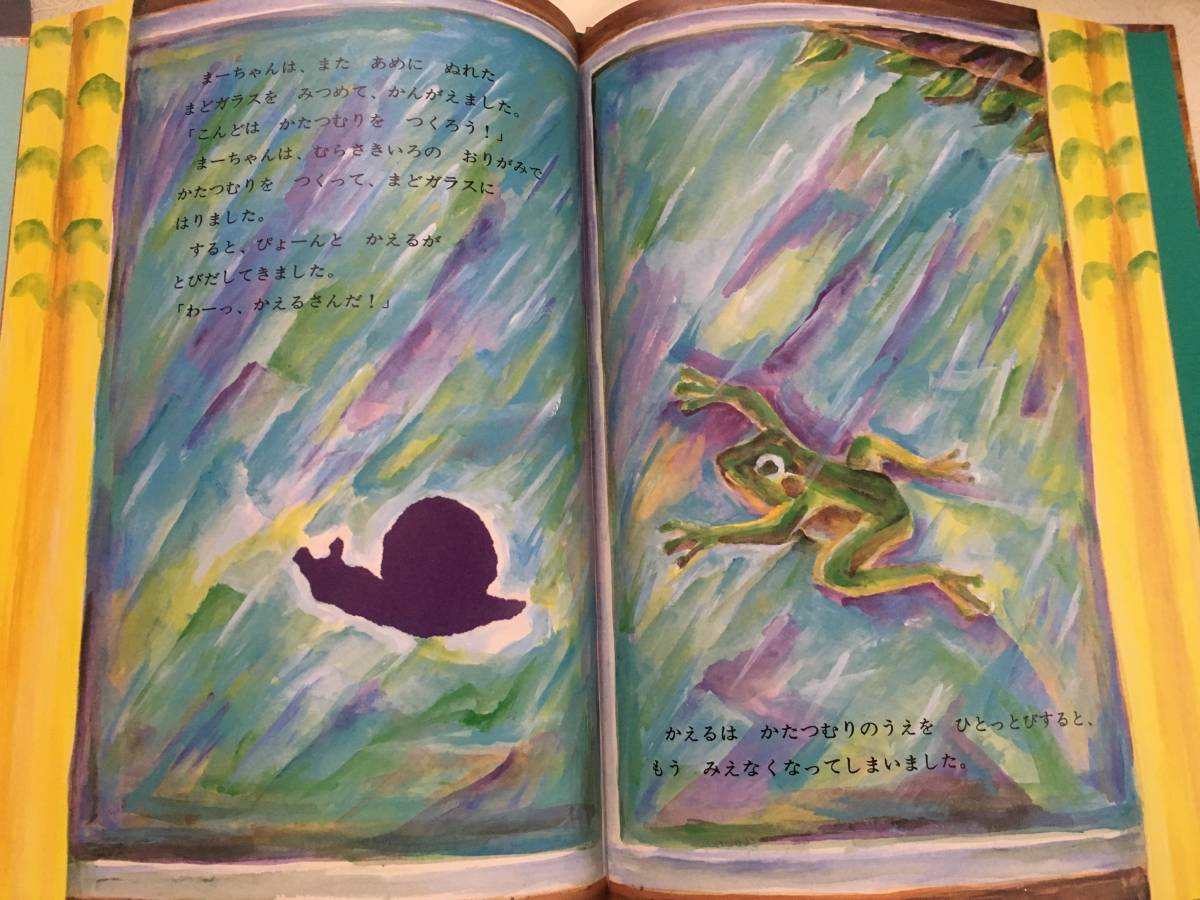 まーちゃんは、また　あめに　ぬれた
まどガラスを　みつめて、かんがえました。
「こんどは　かたつむりを　つくろう！」
まーちゃんは、むらさきいろの　おりがみで
かたつむりを　つくって、まどガラスに
はりました。
すると、ぴょーんと　かえるが
とびだしてきました。
「わーっ、かえるさんだ！」
かえるは　かたつむりのうえを　ひとっとびすると、
もう　みえなくなってしまいました。